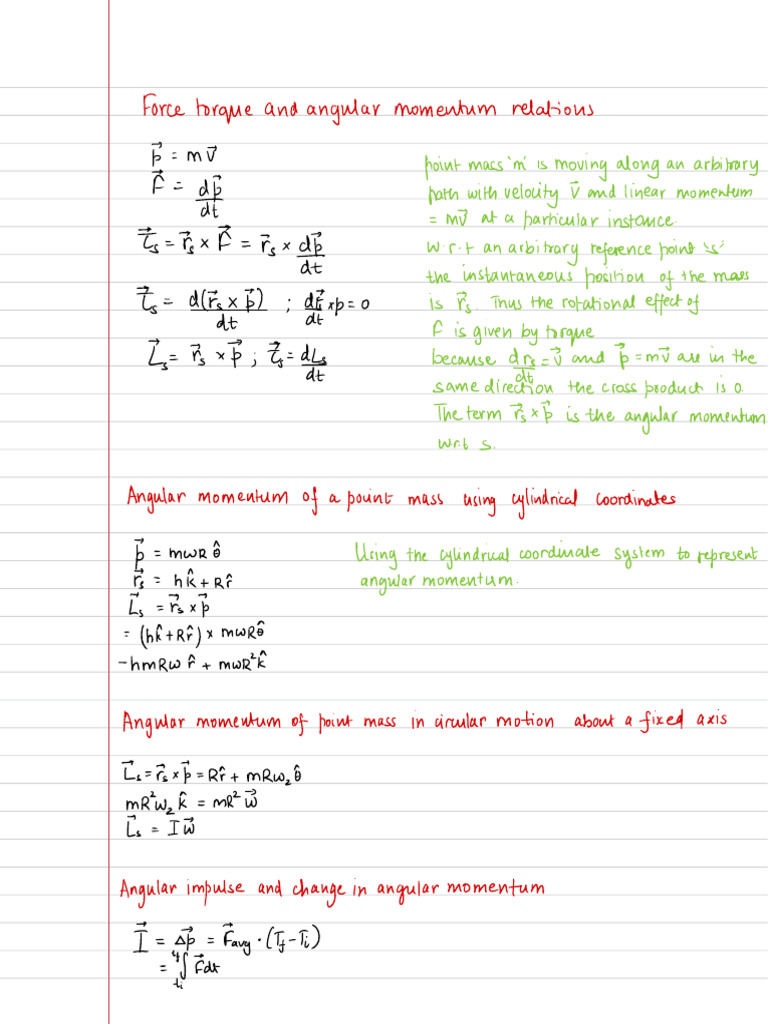 Force torque and angular momentum relations
p⃗ = mv⃗
F⃗ = dp⃗/dt
τ⃗s = r⃗s × F⃗ = r⃗s × dp⃗/dt
τ⃗s = d(r⃗s × p⃗)/dt ; dr⃗s/dt × p = 0
L⃗s = r⃗s × p⃗ ; τ⃗s = dLs/dt
point mass 'm' is moving along an arbitrary
path with velocity v⃗ and linear momentum
= mv⃗ at a particular instance.
w.r.t an arbitrary reference point 's'
the instantaneous position of the mass
is r⃗s. Thus the rotational effect of
F is given by torque
because drs/dt = v⃗ and p⃗ = mv⃗ are in the
same direction the cross product is 0.
The term r⃗s × p⃗ is the angular momentum
w.r.t s.
Angular momentum of a pount mass using cylindrical coordinates
p⃗ = mωR θ̂
r⃗s = hk̂ + Rr̂
L⃗s = r⃗s × p⃗
= (hk̂ + Rr̂) × mωRθ̂
-hmRω r̂ + mωR²k̂
Using the cylindrical coordinate system to represent
angular momentum.
Angular momentum of point mass in circular motion about a fixed axis
L⃗s = r⃗s × p⃗ = Rr̂ + mRω₂θ̂
mR²ω₂ k̂ = mR² ω⃗
L⃗s = I ω⃗
Angular impulse and change in angular momentum
I⃗ = Δp⃗ = F⃗avg · (Tf - Ti)
= ∫ F⃗dt